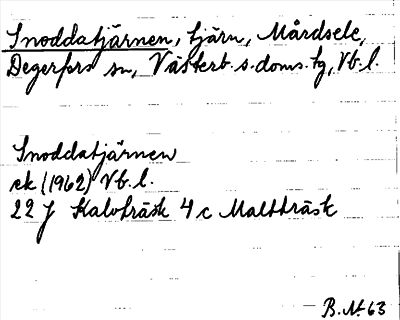 Snoddatjärnen, tjärn, Mårdsele,
Degerfors sn, Västerb. s. doms. tg, Vb. l.
Snoddatjärnen
ek (1962) Vb. l.
22 J Kalvträsk 4 c Maltträsk
B. N. 63